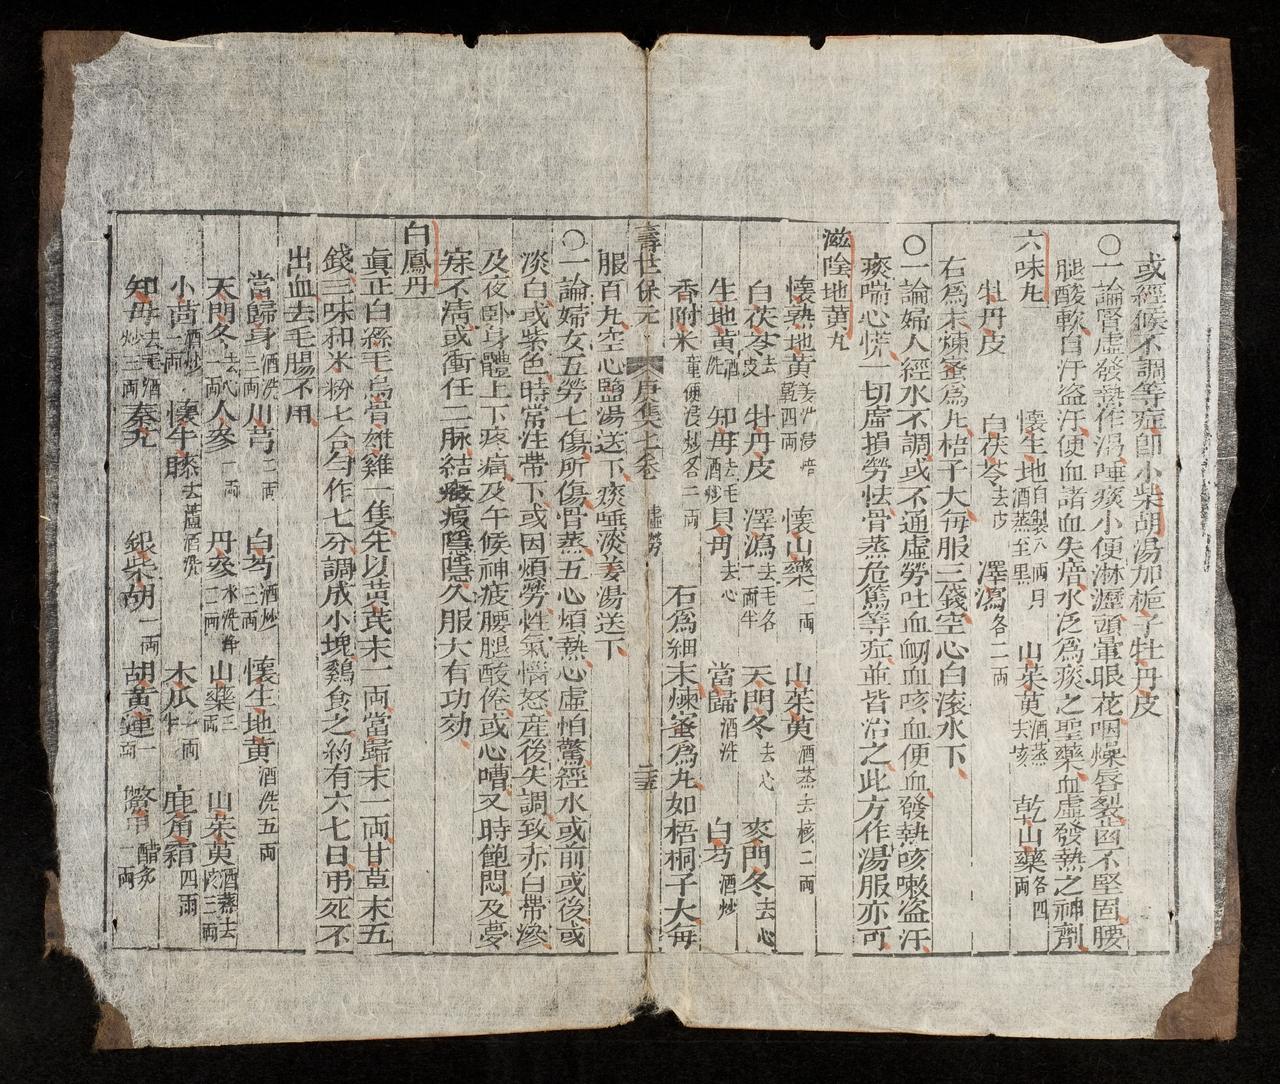 或經候不調等症即小柴胡湯加梔子牡丹皮
○一論腎虛發熱作渴唾痰小便淋瀝頭暈眼花咽燥唇裂齒不堅固腰
腿酸軟自汗盜汗便血諸血失瘖水泛為痰之聖藥血虛發熱之神劑
六味丸
懷生地自製八兩月酒蒸至黑 山茱萸酒蒸去核 乾山藥各四兩
牡丹皮 白茯苓去皮 澤瀉各二兩
右為末煉蜜為丸梧子大每服三錢空心白滾水下
○一論婦人經水不調或不通虛勞吐血衂血咳血便血發熱咳嗽盜汗
痰喘心慌一切虛損勞怯骨蒸危篤等症並皆治之此方作湯服亦可
滋陰地黃丸
懷熟地黃姜汁浸焙乾四兩 懷山藥二兩 山茱萸酒蒸去核二兩
白茯苓去皮 牡丹皮 澤瀉去毛各一兩半 天門冬去心 麥門冬去心
生地黃酒洗 知母去毛酒炒 貝母去心 當歸酒洗 白芍酒炒
香附米童便浸炒各二兩 右為細末煉蜜為丸如梧桐子大每
壽世保元 庚集七卷 虛勞
服百丸空心鹽湯送下痰唾淡姜湯送下
○一論婦女五勞七傷所傷骨蒸五心煩熱心虛怕驚經水或前或後或
淡白或紫色時常注帶下或因煩勞性氣惱怒產後失調致赤白帶渙
及夜卧身體上下疼痛及午候神疲腰腿酸倦或心嘈又時飽悶及夢
寐不清或衝任二脉結瘕隱隱久服大有功効
白鳳丹
真正白絲毛烏骨雄雞一隻先以黃芪末一兩當歸末一兩甘草末五
錢三味和米粉七合勻作七分調成小塊鷄食之約有六七日吊死不
出血去毛腸不用
當歸身酒洗三兩 川芎二兩 白芍酒炒三兩 懷生地黃酒洗五兩
天門冬去心一兩 人參一兩 丹參水洗二兩 山藥三兩 山茱萸酒蒸去核三兩
小茴酒炒一兩 懷牛膝去蘆酒洗 木瓜一兩 鹿角霜四兩
知母去毛酒炒三兩 秦艽 銀柴胡一兩 胡黃連一兩 鱉甲醋炙一兩